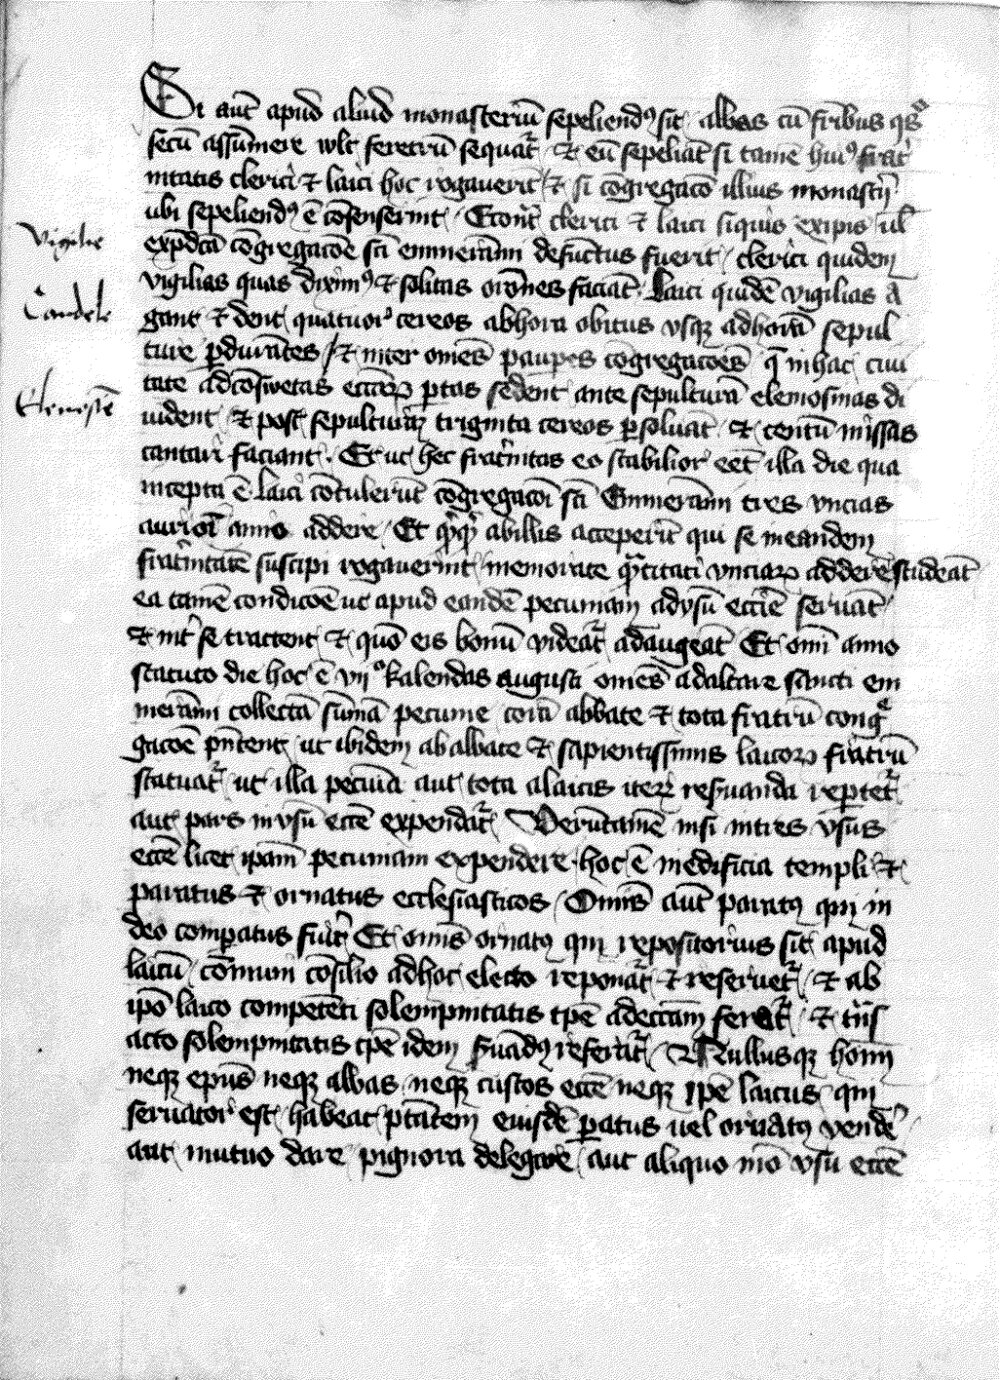 Si aūt apud aliud monasteriū sepeliendꝰ sit abbas cū frībus qͦs
secū assūmere wlt feretrū sequat᷑ ⁊ eū sepeliāt si tamē huiꝰ frat᷑
nitatis clerici ⁊ laici hoc rogauerīt ⁊ si cōgregacō illius monastīj
ubi sepeliendꝰ ē cōsenserint Econt᷑ clerici ⁊ laici siquis exipis ul̄
Vigilie
exp̄dcā cōgregacōe sci emmerammi defunctus fuerit clerici quidem
vigilias quas diximꝰ ⁊ solitas orōnes faciāt Laici quidē vigilias a
Candele
gant ⁊ dent quatuor cereos abhora obitus vsqꝫ adhorā sepul
ture ꝑdurātes ⁊ inter omēs paupes cōgregacōes q̄ inhac ciui
tate adcōswetas eccaꝝ ꝑtas sedent ante sepulturā elemosinas di
Elemosē
uident ⁊ post sepulturā triginta cereos ꝑsoluāt ⁊ centū missas
cantari faciant Et ut hec frat᷑nitas eo stabilior eet illa die qua
incepta ē laici cōtulerūt cōgregacōi sci Emmerammi tres vncias
auri oī anno addere Et qͥcqͥd abillis acceperīt qui se ineandem
frat᷑nitatē suscipi rogauerint memorate qͣtitati vnciaꝝ addere studeāt
ea tamē condicōe ut apud eandē pecuniam advsū eccīe seruāt᷑
⁊ int᷑ se tractent ⁊ quō eis bonū videat᷑ adaugeāt Et omī anno
statuto die hoc ē vijͦ kalendas augusti omēs adaltare sancti em
merammi collectā sūmā pecunie corā abbate ⁊ tota fratrū congͤ
gacōe pn̄tent ut ibidem ab abbate ⁊ sapientissimis laicoꝝ fratrū
statuat᷑ ut illa pecūia aut tota alaicis iterū resuanda reportet᷑
aut pars in vsū eccē expendat᷑ Verūtamē nisi intres vsus
eccē licet ipam pecuniam expendere hoc ē inedificia templi ⁊
paratus ⁊ ornatus ecclesiasticos Omīs aūt paratꝰ qui in
deo comparatus fuīt Et omīs ornatꝰ qui repositorius sit apud
laicū cōmuni cōsilio adhoc electo reponat᷑ ⁊ reseruet᷑ ⁊ ab
ipo laico competēti solempnitatis tpē adeccam ferat᷑ ⁊ tͣns
acto solempnitatis tpē idem suādꝰ referat᷑ Nullusqꝫ homī
neqꝫ epūs neqꝫ abbas neqꝫ custos eccē neqꝫ ipē laicus qui
seruator est habeat ptātem eiusdē ꝑatus uel ornatꝰ vende᷑
aut mutuo dare pignora delegare aut aliquo mō vsū eccē